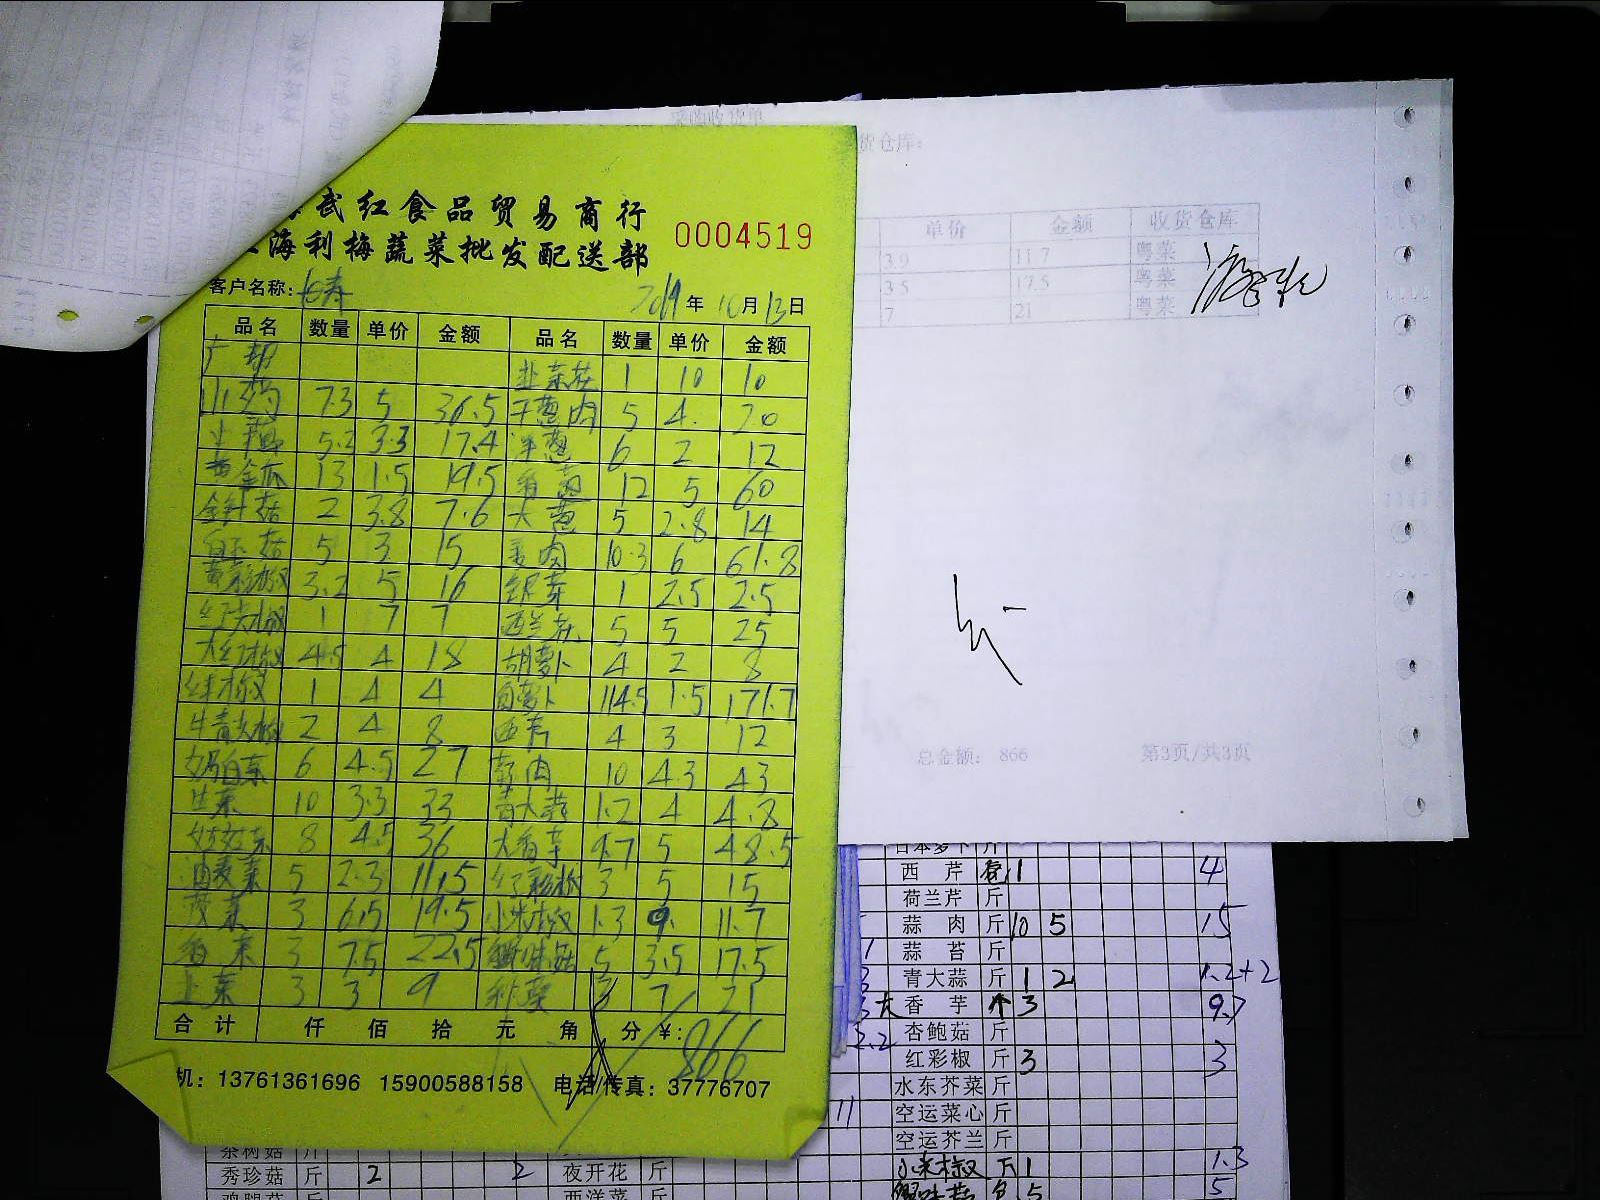 武红食品贸易商行
海利梅蔬菜批发配送部
0004519
客户名称:
2019年10月13日
品名 数量 单价 金额 品名 数量 单价 金额
韭菜花 1 10 10
山药 73 5 36.5 干葱肉 5 4. 20
土豆 5.2 3.3 17.4 洋葱 6 2 12
黄金瓜 13 1.5 19.5 香菌 12 5 60
金针菇 2 3.8 7.6 大葱 5 2.8 14
白玉菇 5 3 15 姜肉 10.3 6 61.8
黄彩椒 3.2 5 16 银芽 1 2.5 2.5
红尖椒 1 7 7 西兰花 5 5 25
大红椒 4.5 4 18 胡萝卜 4 2 8
1 4 4 白萝卜 114.5 1.5 171.7
牛青尖椒 2 4 8 西芹 4 3 12
娃白菜 6 4.5 27 蒜肉 10 4.3 43
生菜 10 3.3 33 青大蒜 1.2 4 4.8
8 4.5 36 大香芋 9.7 5 48.5
油麦菜 5 2.3 11.5 红彩椒 3 5 15
菠菜 3 6.5 19.5 小米椒 1.3 9. 11.7
香菜 3 7.5 22.5 蟹味菇 5 3.5 17.5
韭菜 3 3 9 秋葵 3 7 21
合计 仟 佰 拾 元 角 分 ¥: 866
机: 13761361696 15900588158 电话/传真: 37776707
采购收货单
货仓库:
单价 金额 收货仓库
3.9 11.7 粤菜
3.5 17.5 粤菜
7 21 粤菜
总金额: 866 第3页/共3页
日本萝卜 斤
西芹 1 4
荷兰芹 斤
蒜肉 斤 10 5 15
蒜苔 斤
青大蒜 斤 1 2 1.2+2
大香芋 个 3 9.7
杏鲍菇 斤
红彩椒 斤 3 3
水东芥菜 斤
空运菜心 斤
空运芥兰 斤
小米椒 斤 1 1.3
蟹味菇 包 5 5
茶树菇 斤
秀珍菇 斤 2 2 夜开花 斤
鸡腿菇 斤 西洋菜 斤